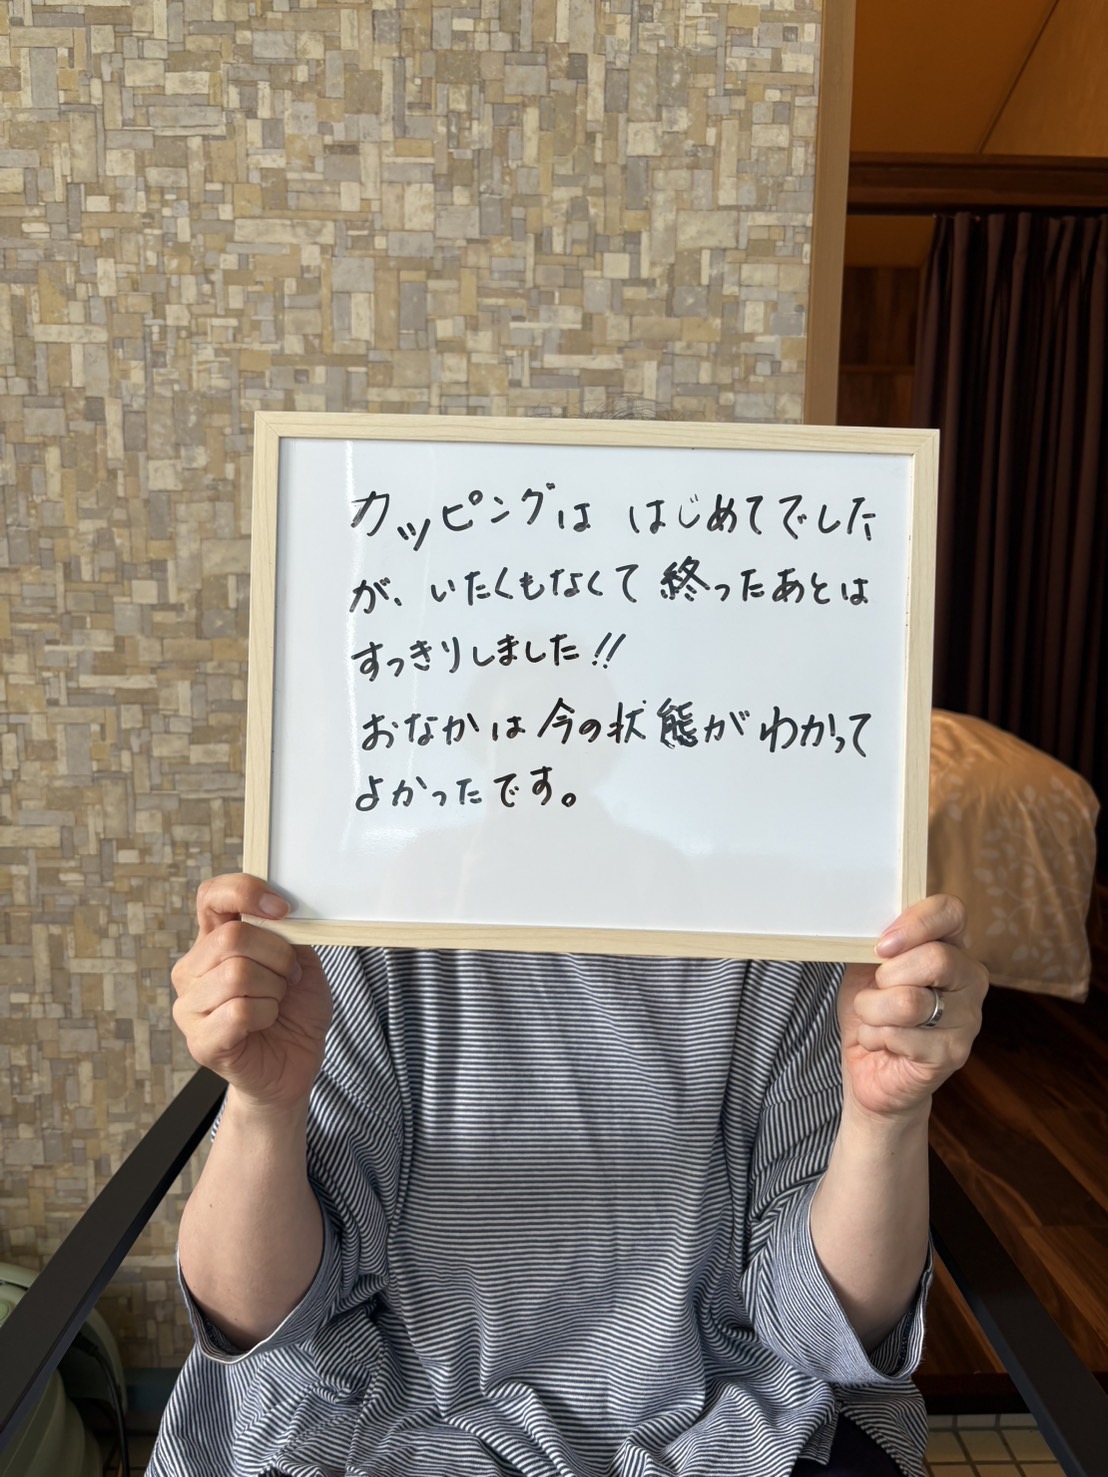 カッピングは はじめてでした
が、いたくもなくて 終ったあとは
すっきりしました!!
おなかは今の状態がわかって
よかったです。